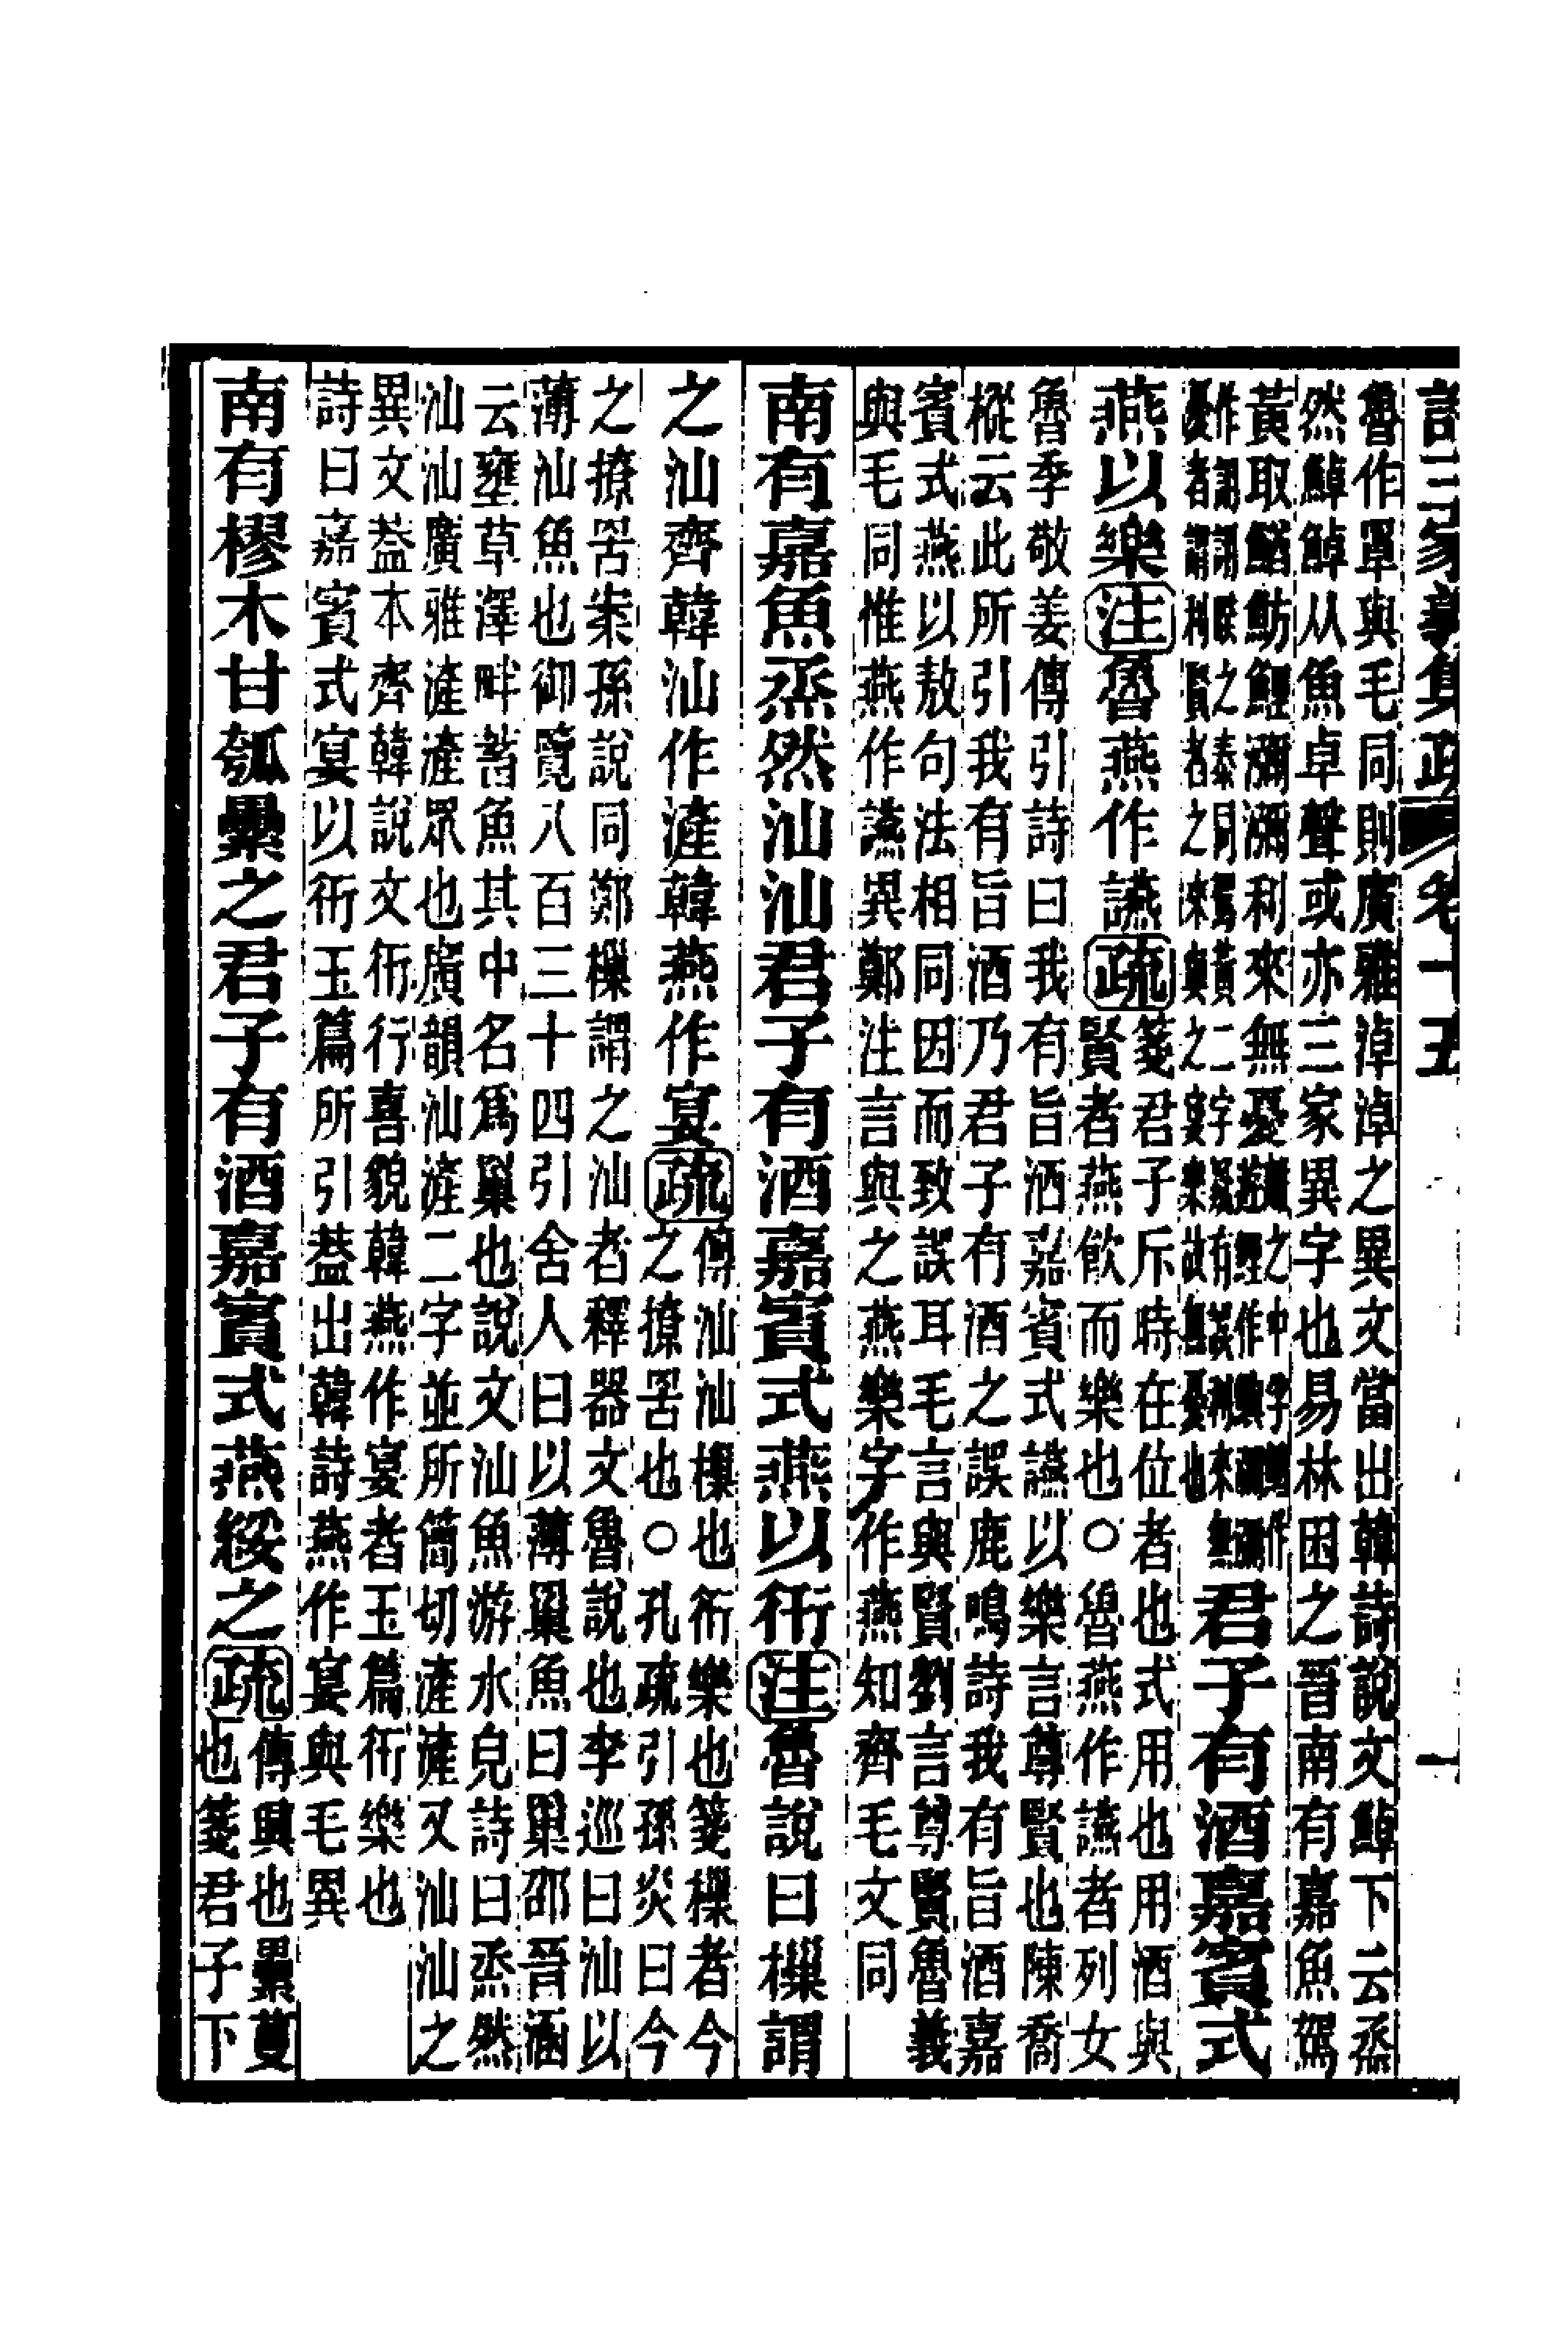 詩三家義集疏 卷十五 一
魯作罩與毛同則廣雅淖淖之異文當出韓詩說文䱜下云烝
然䱜䱜从魚卓聲或亦三家異字也易林困之晉南有嘉魚駕
黃取鰌魴鯉瀰瀰利來無憂
之中孚作
鯉作瀰瀰
作詡詡睽之泰同駕黃二字疑有誤利來無
憂者謂利賢者之來與之宴樂故無憂也
君子有酒嘉賓式
燕以樂注魯燕作讌疏
箋君子斥時在位者也式用也用酒與
賢者燕飲而樂也○魯燕作讌者列女
魯季敬姜傳引詩曰我有旨酒嘉賓式讌以樂言尊賢也陳喬
樅云此所引我有旨酒乃君子有酒之誤鹿鳴詩我有旨酒嘉
賓式燕以敖句法相同因而致誤耳毛言與賢劉言尊賢魯義
與毛同惟燕作讌異鄭注言與之燕樂字作燕知齊毛文同
南有嘉魚烝然汕汕君子有酒嘉賓式燕以衎注魯說曰樔謂
之汕齊韓汕作滻韓燕作宴疏
傳汕汕樔也衎樂也箋樔者今
之撩罟也○孔疏引孫炎曰今
之撩罟朱孫說同鄭樔謂之汕者釋器文魯說也李巡曰汕以
薄汕魚也御覽八百三十四引舍人曰以薄罺魚曰罺邵晉涵
云壅草澤畔著魚其中名爲罺也說文汕魚游水皃詩曰烝然
汕汕廣雅滻滻眾也廣韻汕滻二字並所簡切滻滻又汕汕之
異文葢本齊韓說文衎行喜貌韓燕作宴者玉篇衎樂也
詩曰嘉賓式宴以衎玉篇所引葢出韓詩燕作宴與毛異
南有樛木甘瓠纍之君子有酒嘉賓式燕綏之疏
傳興也纍蔓
也箋君子下